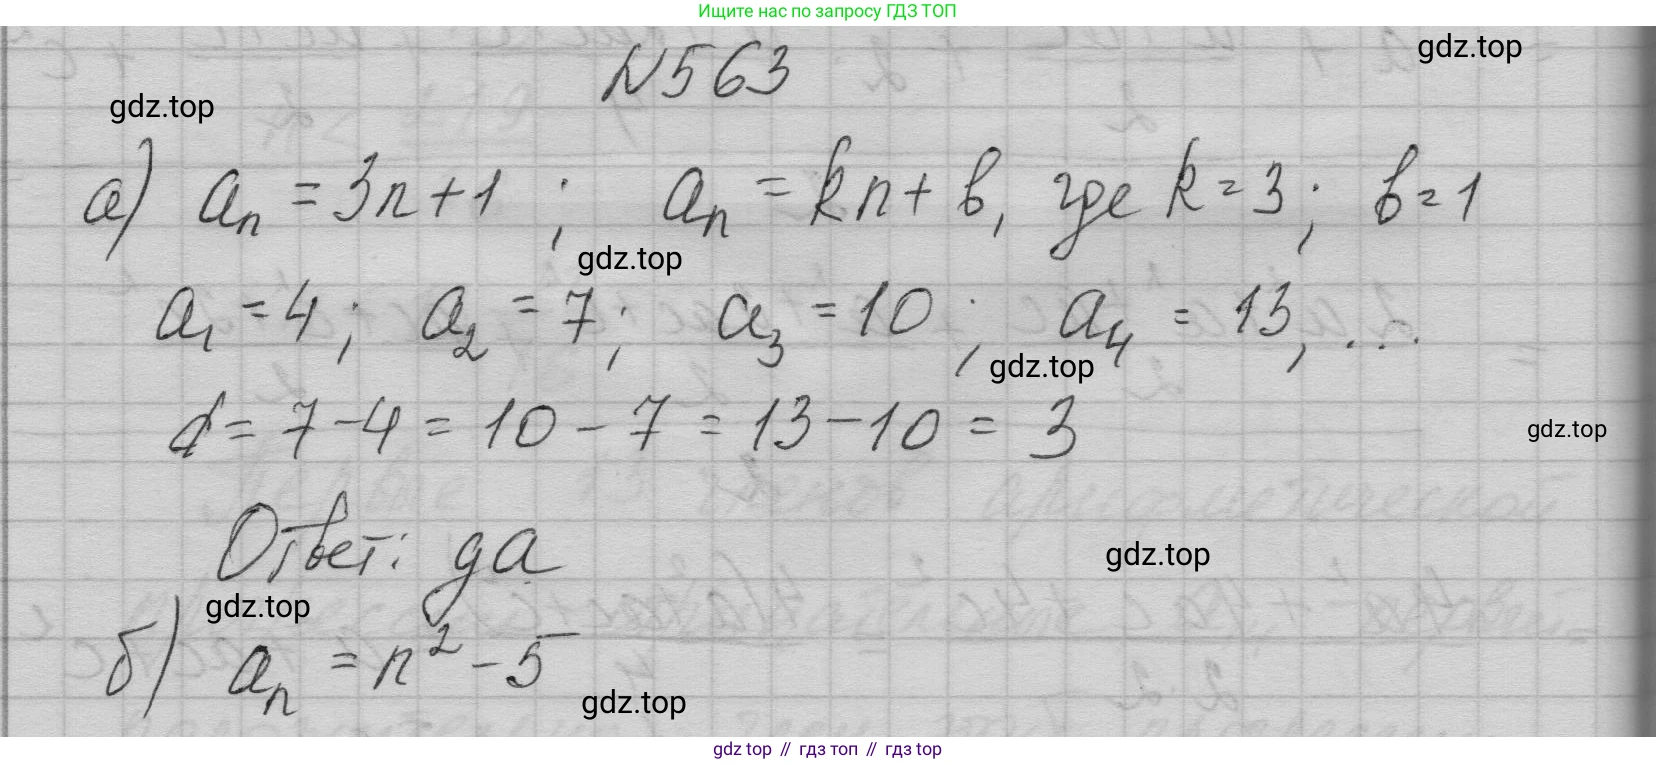 Ищите нас по запросу ГДЗ ТОП
gdz.top
N563
gdz.top
а) aₙ = 3n + 1 ; aₙ = kn + b, где k = 3; b = 1
gdz.top
a₁ = 4; a₂ = 7; a₃ = 10; a₄ = 13, ...
gdz.top
d = 7 - 4 = 10 - 7 = 13 - 10 = 3
gdz.top
Ответ: да
gdz.top
gdz.top
б) aₙ = n² - 5
gdz.top
gdz top // гдз топ // gdz top